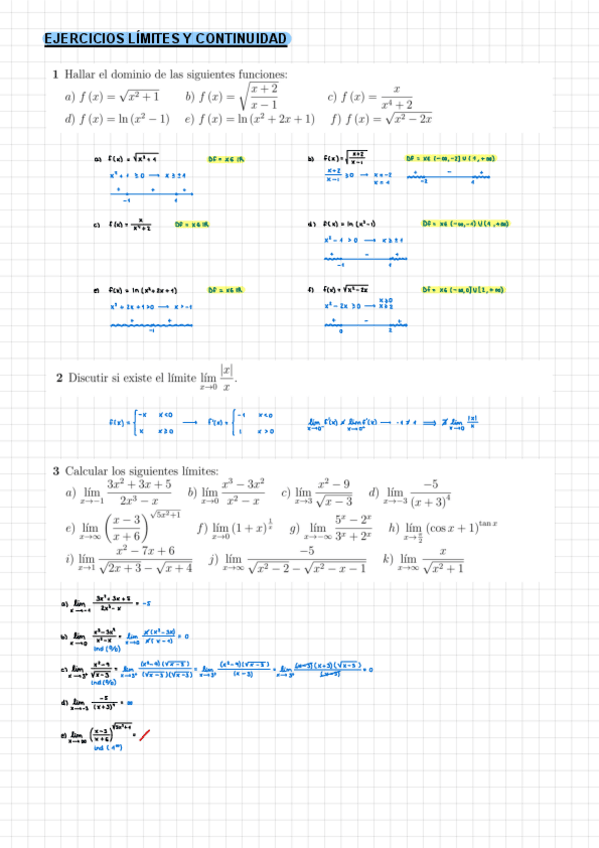 EJERCICIOS LÍMITES Y CONTINUIDAD
1 Hallar el dominio de las siguientes funciones:
a) f (x) = √(x² + 1) b) f (x) = √((x + 2)/(x − 1)) c) f (x) = x/(x⁴ + 2)
d) f (x) = ln (x² − 1) e) f (x) = ln (x² + 2x + 1) f) f (x) = √(x² − 2x)
a) f(x) = √(x²+1) Df = x∈ℝ b) f(x) = √((x+2)/(x-1)) Df = x∈ (-∞,-2] ∪ (1,+∞)
x²+1 ≥0 → x ≥ ±1 (x+2)/(x-1) ≥0 → x=-2 x=1
+ + + − +
-1 -2 1
c) f(x) = Df = x∈ℝ d) f(x) = ln (x²-1) Df = x∈ (-∞,-1) ∪ (1,+∞)
x²-1 >0 → x ≥ ±1
+ − +
-1 1
e) f(x) = ln (x²+2x+1) Df = x∈ℝ f) f(x) = √(x²-2x) Df = x∈ (-∞,0] ∪ [2,+∞)
x²+2x+1>0 → x>-1 x²-2x ≥0 → x≥0 x≥2
+ + + − +
-1 0 2
2 Discutir si existe el límite lím x→0 |x|/x.
f(x) = { -x x<0 → f'(x) = { -1 x<0 lim x→0⁻ f'(x) ≠ lim x→0⁺ f'(x) → -1 ≠ 1 ⟹ ∄ lim x→0 |x|/x
x x≥0 1 x>0
3 Calcular los siguientes límites:
a) lím x→−1 (3x² + 3x + 5)/(2x³ − x) b) lím x→0 (x³ − 3x²)/(x² − x) c) lím x→3 (x² − 9)/√(x − 3) d) lím x→−3 −5/(x + 3)⁴
e) lím x→∞ ((x − 3)/(x + 6))^√(5x²+1) f) lím x→0 (1 + x)^(1/x) g) lím x→−∞ (5ˣ − 2ˣ)/(3ˣ + 2ˣ) h) lím x→π/2 (cos x + 1)^(tan x)
i) lím x→1 (x² − 7x + 6)/(√(2x + 3) − √(x + 4)) j) lím x→∞ −5/(√(x² − 2) − √(x² − x − 1)) k) lím x→∞ x/√(x² + 1)
a) lim x→-1 (3x²+3x+5)/(2x³-x) = -5
b) lim x→0 (x³-3x²)/(x²-x) = lim x→0 x(x²-3x)/x(x-1) = 0
ind (0/0)
c) lim x→3⁺ (x²-9)/√(x-3) = lim x→3⁺ (x²-9)(√(x-3))/(√(x-3))(√(x-3)) = lim x→3⁺ (x²-9)(√(x-3))/(x-3) = lim x→3⁺ (x-3)(x+3)(√(x-3))/(x-3) = 0
ind (0/0)
d) lim x→-3 -5/(x+3)⁴ = ∞
e) lim x→∞ ((x-3)/(x+6))^√(5x²+1) =
ind (1^∞)